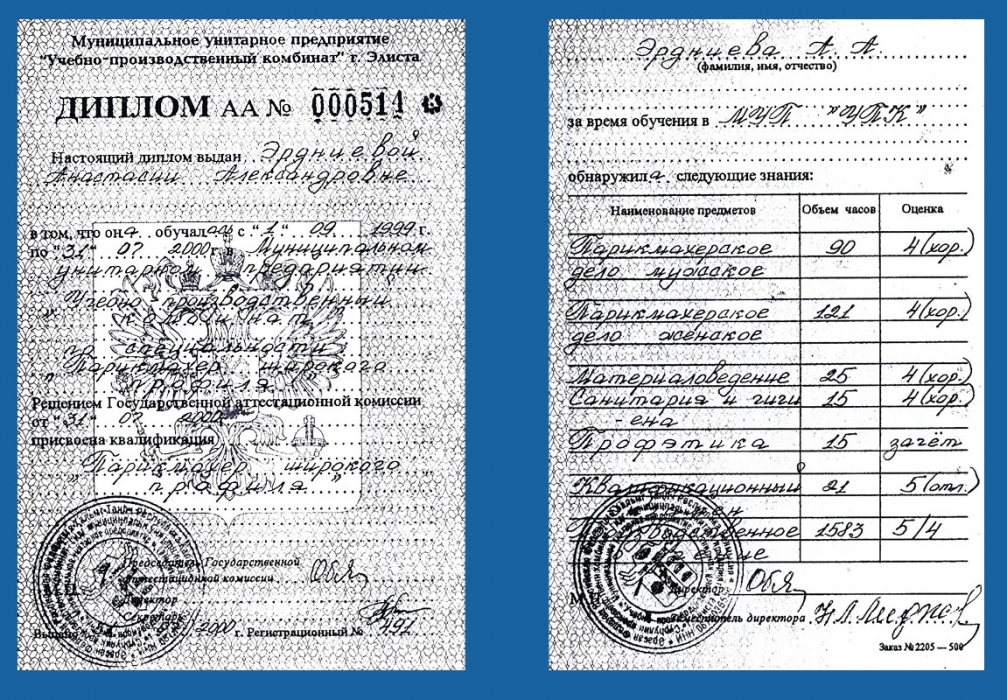 Муниципальное унитарное предприятие
"Учебно-производственный комбинат" г. Элиста
ДИПЛОМ АА № 000514
Настоящий диплом выдан Эрдниевой
Анастасии Александровне
в том, что она обучалась с "1" 09 1999 г.
по "31" 07 2000 г. в Муниципальном
унитарном предприятии
"Учебно-производственный
комбинат"
специальности
"Парикмахер широкого
профиля"
Решением Государственной аттестационной комиссии
от "31" 07 2000
присвоена квалификация
"Парикмахер широкого
профиля"
Председатель Государственной
аттестационной комиссии
Директор
Секретарь
2000 г. Регистрационный № 491
Эрдниева А. А.
(фамилия, имя, отчество)
за время обучения в МУП "УПК"
обнаружила следующие знания:
Наименование предметов Объем часов Оценка
Парикмахерское 90 4(хор.)
дело мужское
Парикмахерское 121 4(хор.)
дело женское
Материаловедение 25 4(хор.)
Санитария и гиги 15 4(хор.)
-ена
Профэтика 15 зачёт
Квалификационный 21 5(отл.)
1583 5/4
Директор
Заместитель директора
Заказ № 2205 — 500